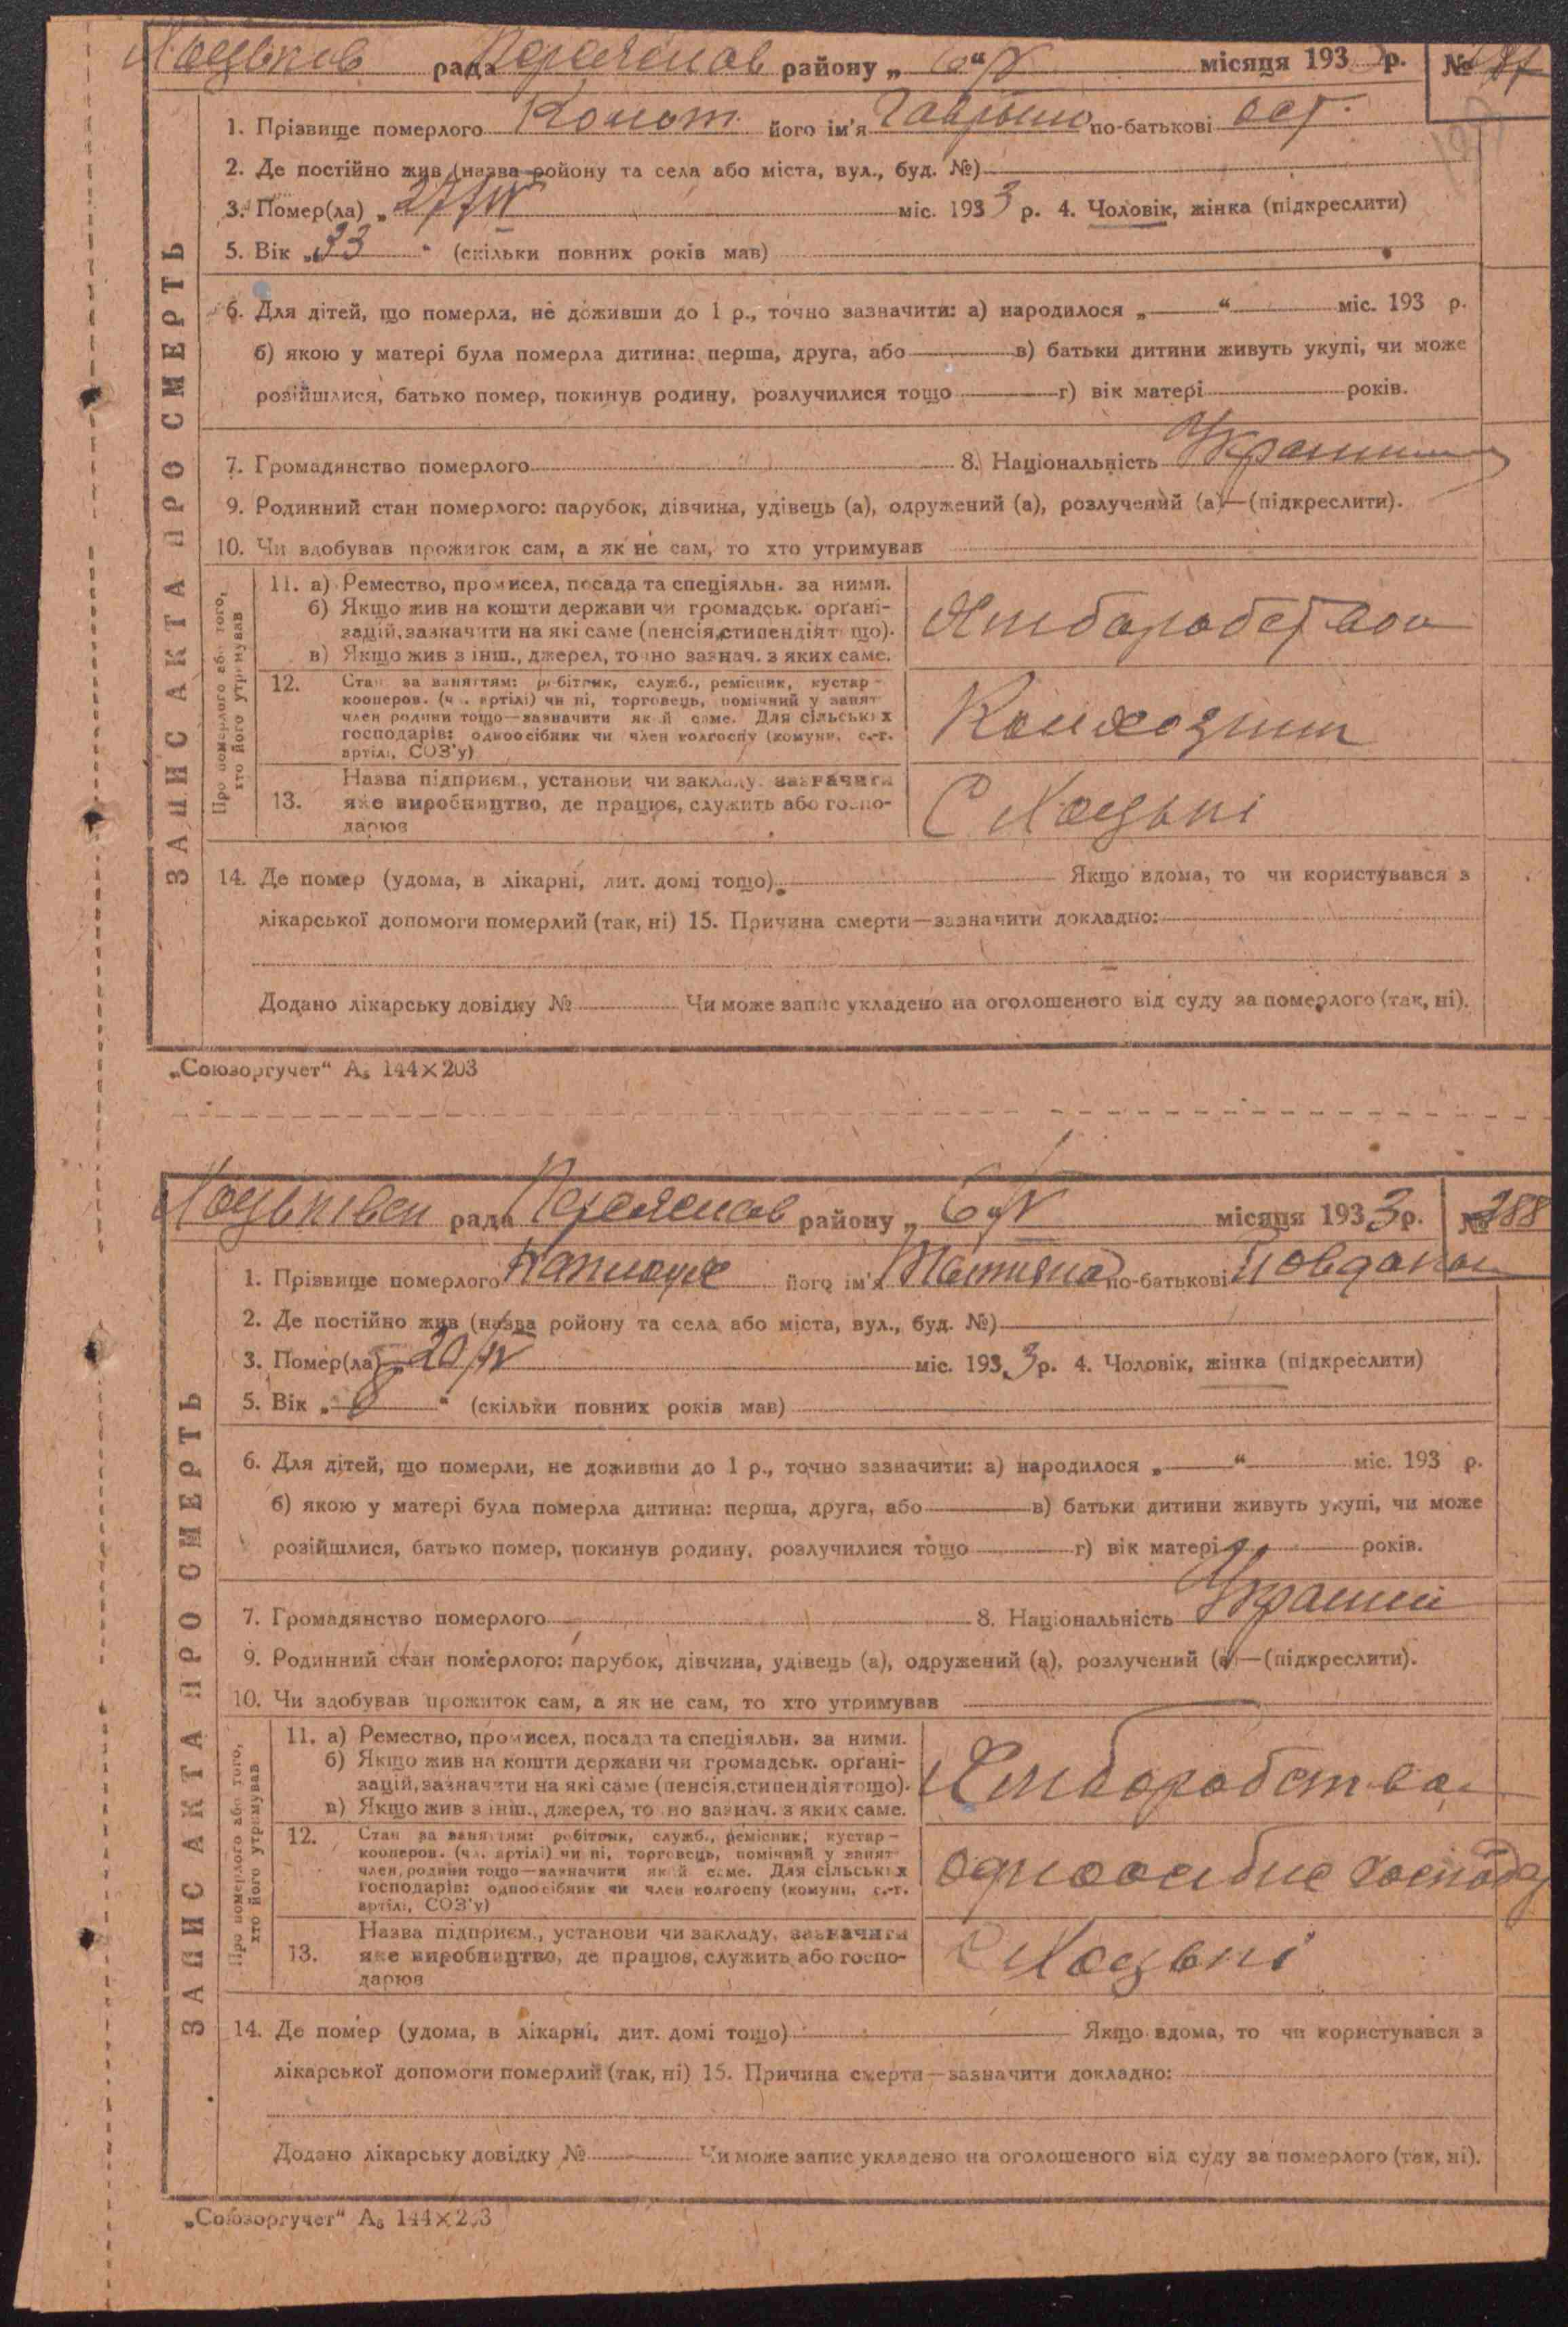 рада Переяслав району „ 6 “ V місяця 1933 р. №
1. Прізвище померлого його ім'я Гаврыло по-батькові
2. Де постійно жив (назва ройону та села або міста, вул., буд. №)
3. Помер(ла) „ 27/IV міс. 1933 р. 4. Чоловік, жінка (підкреслити)
5. Вік „ 33 “ (скільки повних років мав)
6. Для дітей, що померли, не доживши до 1 р., точно зазначити: а) народилося „ “ міс. 193 р.
б) якою у матері була померла дитина: перша, друга, або в) батьки дитини живуть укупі, чи може
розійшлися, батько помер, покинув родину, розлучилися тощо г) вік матері років.
7. Громадянство померлого 8. Національність
9. Родинний стан померлого: парубок, дівчина, удівець (а), одружений (а), розлучений (а)—(підкреслити).
10. Чи здобував прожиток сам, а як не сам, то хто утримував
Про померлого або того, хто його утримував
11. а) Ремество, промисел, посада та спеціяльн. за ними.
б) Якщо жив на кошти держави чи громадськ. орґані-
зацій, зазначити на які саме (пенсія, стипендія тощо).
в) Якщо жив з інш., джерел, точно зазнач. з яких саме.
12. Стан за заняттям: робітник, служб., ремісник, кустар-
кооперов. (чл. артілі) чи ні, торговець, помічний у занят
член родини тощо—зазначити який саме. Для сільських
господарів: одноосібник чи член колгоспу (комуни, с.-г.
артілі, СОЗ'у)
13. Назва підприєм., установи чи закладу, зазначити
яке виробництво, де працює, служить або госпо-
дарює
С Хоцьки
14. Де помер (удома, в лікарні, дит. домі тощо) Якщо вдома, то чи користувався з
лікарської допомоги померлий (так, ні) 15. Причина смерти—зазначити докладно:
Додано лікарську довідку № Чи може запис укладено на оголошеного від суду за померлого (так, ні).
ЗАПИС АКТА ПРО СМЕРТЬ
„Союзоргучет“ А₅ 144×203
рада Переяслав району „ 6 “ V місяця 1933 р. № 288
1. Прізвище померлого його ім'я Тетяна по-батькові
2. Де постійно жив (назва ройону та села або міста, вул., буд. №)
3. Помер(ла) „ 20/IV міс. 1933 р. 4. Чоловік, жінка (підкреслити)
5. Вік „ 8 “ (скільки повних років мав)
6. Для дітей, що померли, не доживши до 1 р., точно зазначити: а) народилося „ “ міс. 193 р.
б) якою у матері була померла дитина: перша, друга, або в) батьки дитини живуть укупі, чи може
розійшлися, батько помер, покинув родину, розлучилися тощо г) вік матері років.
7. Громадянство померлого 8. Національність
9. Родинний стан померлого: парубок, дівчина, удівець (а), одружений (а), розлучений (а)—(підкреслити).
10. Чи здобував прожиток сам, а як не сам, то хто утримував
Про померлого або того, хто його утримував
11. а) Ремество, промисел, посада та спеціяльн. за ними.
б) Якщо жив на кошти держави чи громадськ. орґані-
зацій, зазначити на які саме (пенсія, стипендія тощо).
в) Якщо жив з інш., джерел, точно зазнач. з яких саме.
Хлиборобства
12. Стан за заняттям: робітник, служб., ремісник, кустар-
кооперов. (чл. артілі) чи ні, торговець, помічний у занят
член родини тощо—зазначити який саме. Для сільських
господарів: одноосібник чи член колгоспу (комуни, с.-г.
артілі, СОЗ'у)
13. Назва підприєм., установи чи закладу, зазначити
яке виробництво, де працює, служить або госпо-
дарює
С Хоцьки
14. Де помер (удома, в лікарні, дит. домі тощо) Якщо вдома, то чи користувався з
лікарської допомоги померлий (так, ні) 15. Причина смерти—зазначити докладно:
Додано лікарську довідку № Чи може запис укладено на оголошеного від суду за померлого (так, ні).
ЗАПИС АКТА ПРО СМЕРТЬ
„Союзоргучет“ А₅ 144×203